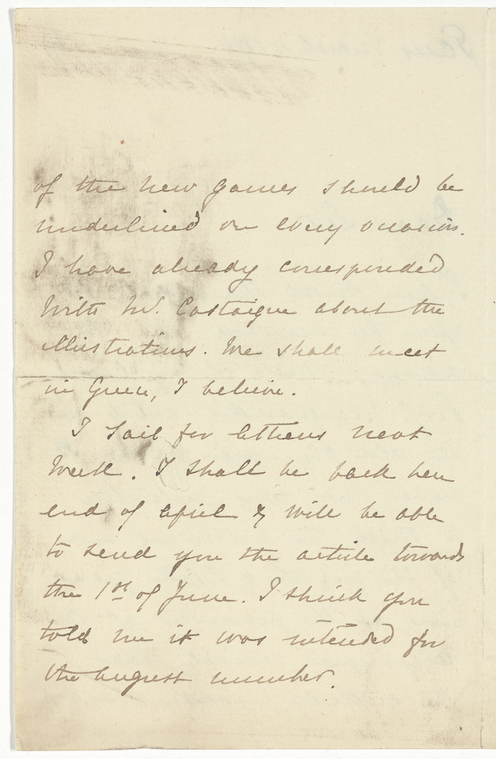 of the new games should be
underlined on every occasion.
I have already corresponded
with Mr. Castaigne about the
illustrations. We shall meet
in Greece, I believe.
I sail for Athens next
week. I shall be back here
end of April & will be able
to send you the article towards
the 1st of June. I think you
told me it was intended for
the August number.